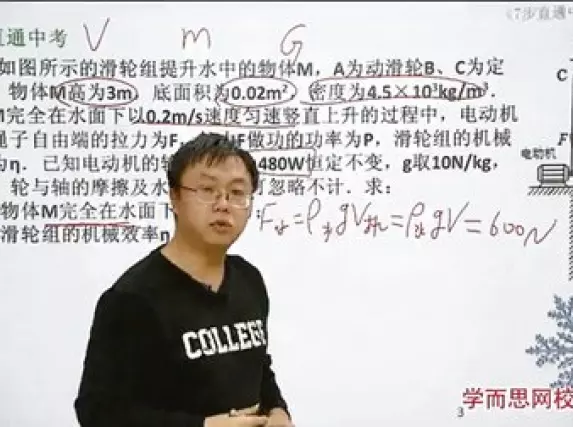 直通中考 V m G 《7步直通中
如图所示的滑轮组提升水中的物体M，A为动滑轮B、C为定
物体M高为3m，底面积为0.02m²，密度为4.5×10³kg/m³．
M完全在水面下以0.2m/s速度匀速竖直上升的过程中，电动机
绳子自由端的拉力为F，F做功的功率为P，滑轮组的机械
为η．已知电动机的 480W恒定不变，g取10N/kg，
轮与轴的摩擦及水 可忽略不计．求：
物体M完全在水面下 ; F浮=ρ水gV排=ρ水gV=600N
滑轮组的机械效率η
C
F
电动机
COLLEGE
3
学而思网校